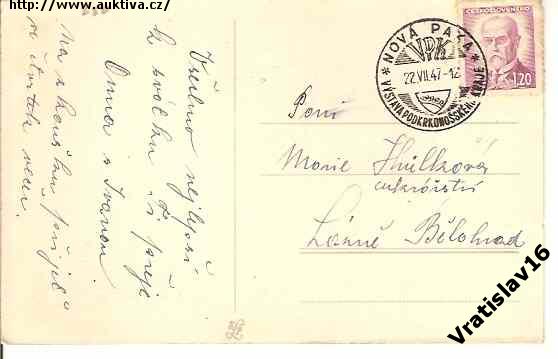 (Zdroj: www.auktiva.cz )
Všechno nejlepší
k svátku Ti přeje
Oma s Ivanou
Na zkoušku přijeď
ve čtvrtek večer.
NOVÁ PAKA
VPK
22.VII.47-12
VÝSTAVA PODKRKONOŠSKÉHO KRAJE
ČESKOSLOVENSKO
1,20
Paní
Marie
cukrářství
Lázně Bělohrad
Vratislav16